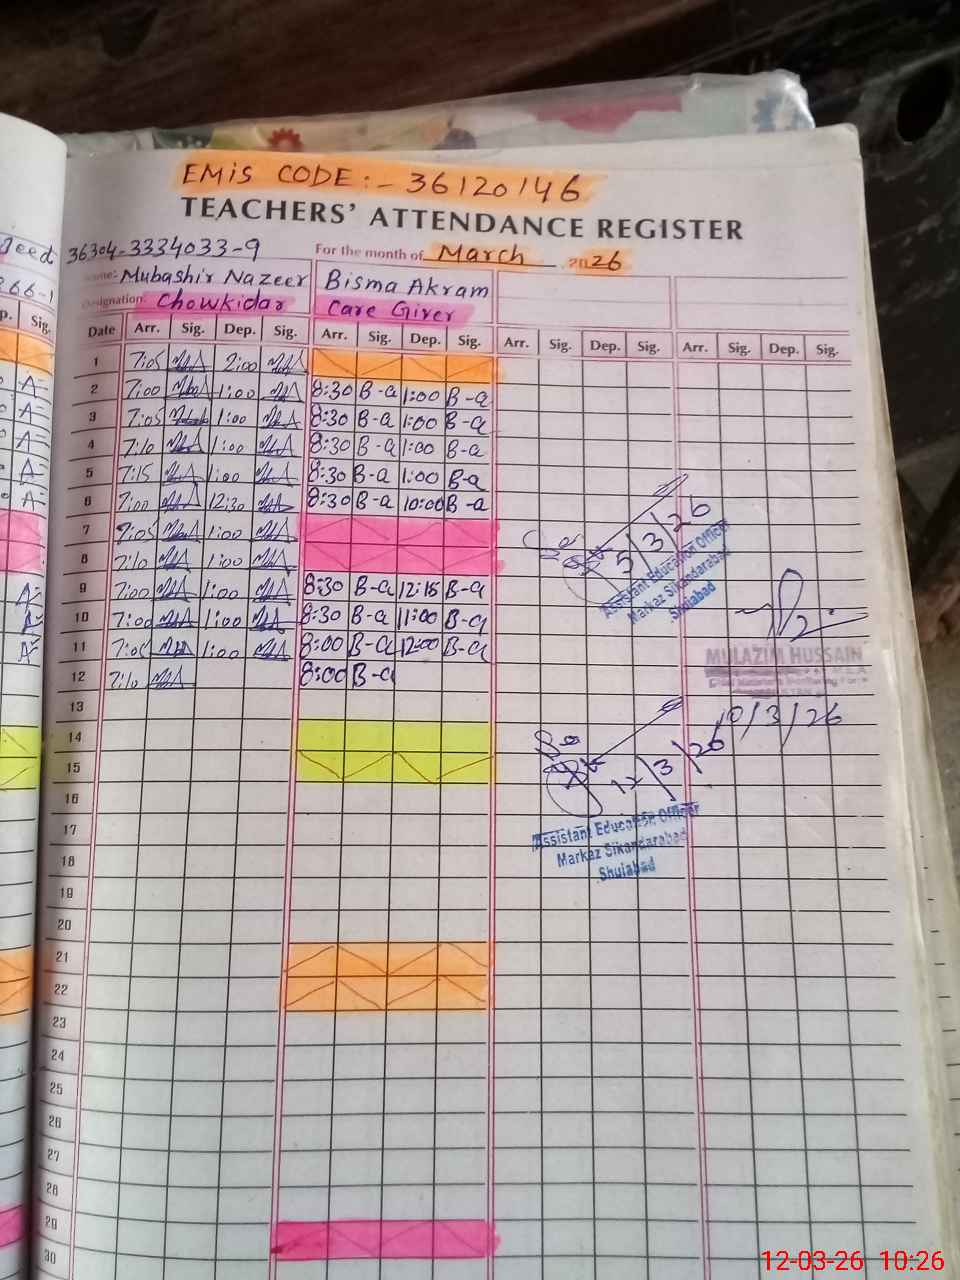 EMIS CODE:- 36120146
TEACHERS' ATTENDANCE REGISTER
36304-3334033-9 For the month of March 2026
Name: Mubashir Nazeer Bisma Akram
Designation: Chowkidar Care Giver
Date Arr. Sig. Dep. Sig. Arr. Sig. Dep. Sig. Arr. Sig. Dep. Sig. Arr. Sig. Dep. Sig.
1 7:05 2:00
2 7:00 1:00 8:30 B-a 1:00 B-a
3 7:05 1:00 8:30 B-a 1:00 B-a
4 7:10 1:00 8:30 B-a 1:00 B-a
5 7:15 1:00 8:30 B-a 1:00 B-a
6 7:00 12:30 8:30 B-a 10:00 B-a
7 7:05 1:00
8 7:10 1:00
9 7:00 1:00 8:30 B-a 12:15 B-a
10 7:00 1:00 8:30 B-a 11:00 B-a
11 7:05 1:00 8:00 B-a 12:00 B-a
12 7:10 8:00 B-a
13
14
15
16
17
18
19
20
21
22
23
24
25
26
27
28
29
30
5/3/26
Assistant Education Officer
Markaz Sikandarabad
Shujabad
MULAZIM HUSSAIN
10/3/26
12/3/26
Assistant Education Officer
Markaz Sikandarabad
Shujabad
eed
266-1
p. Sig.
A-
A-
A-
A-
A-
A-
A-
A-
12-03-26 10:26